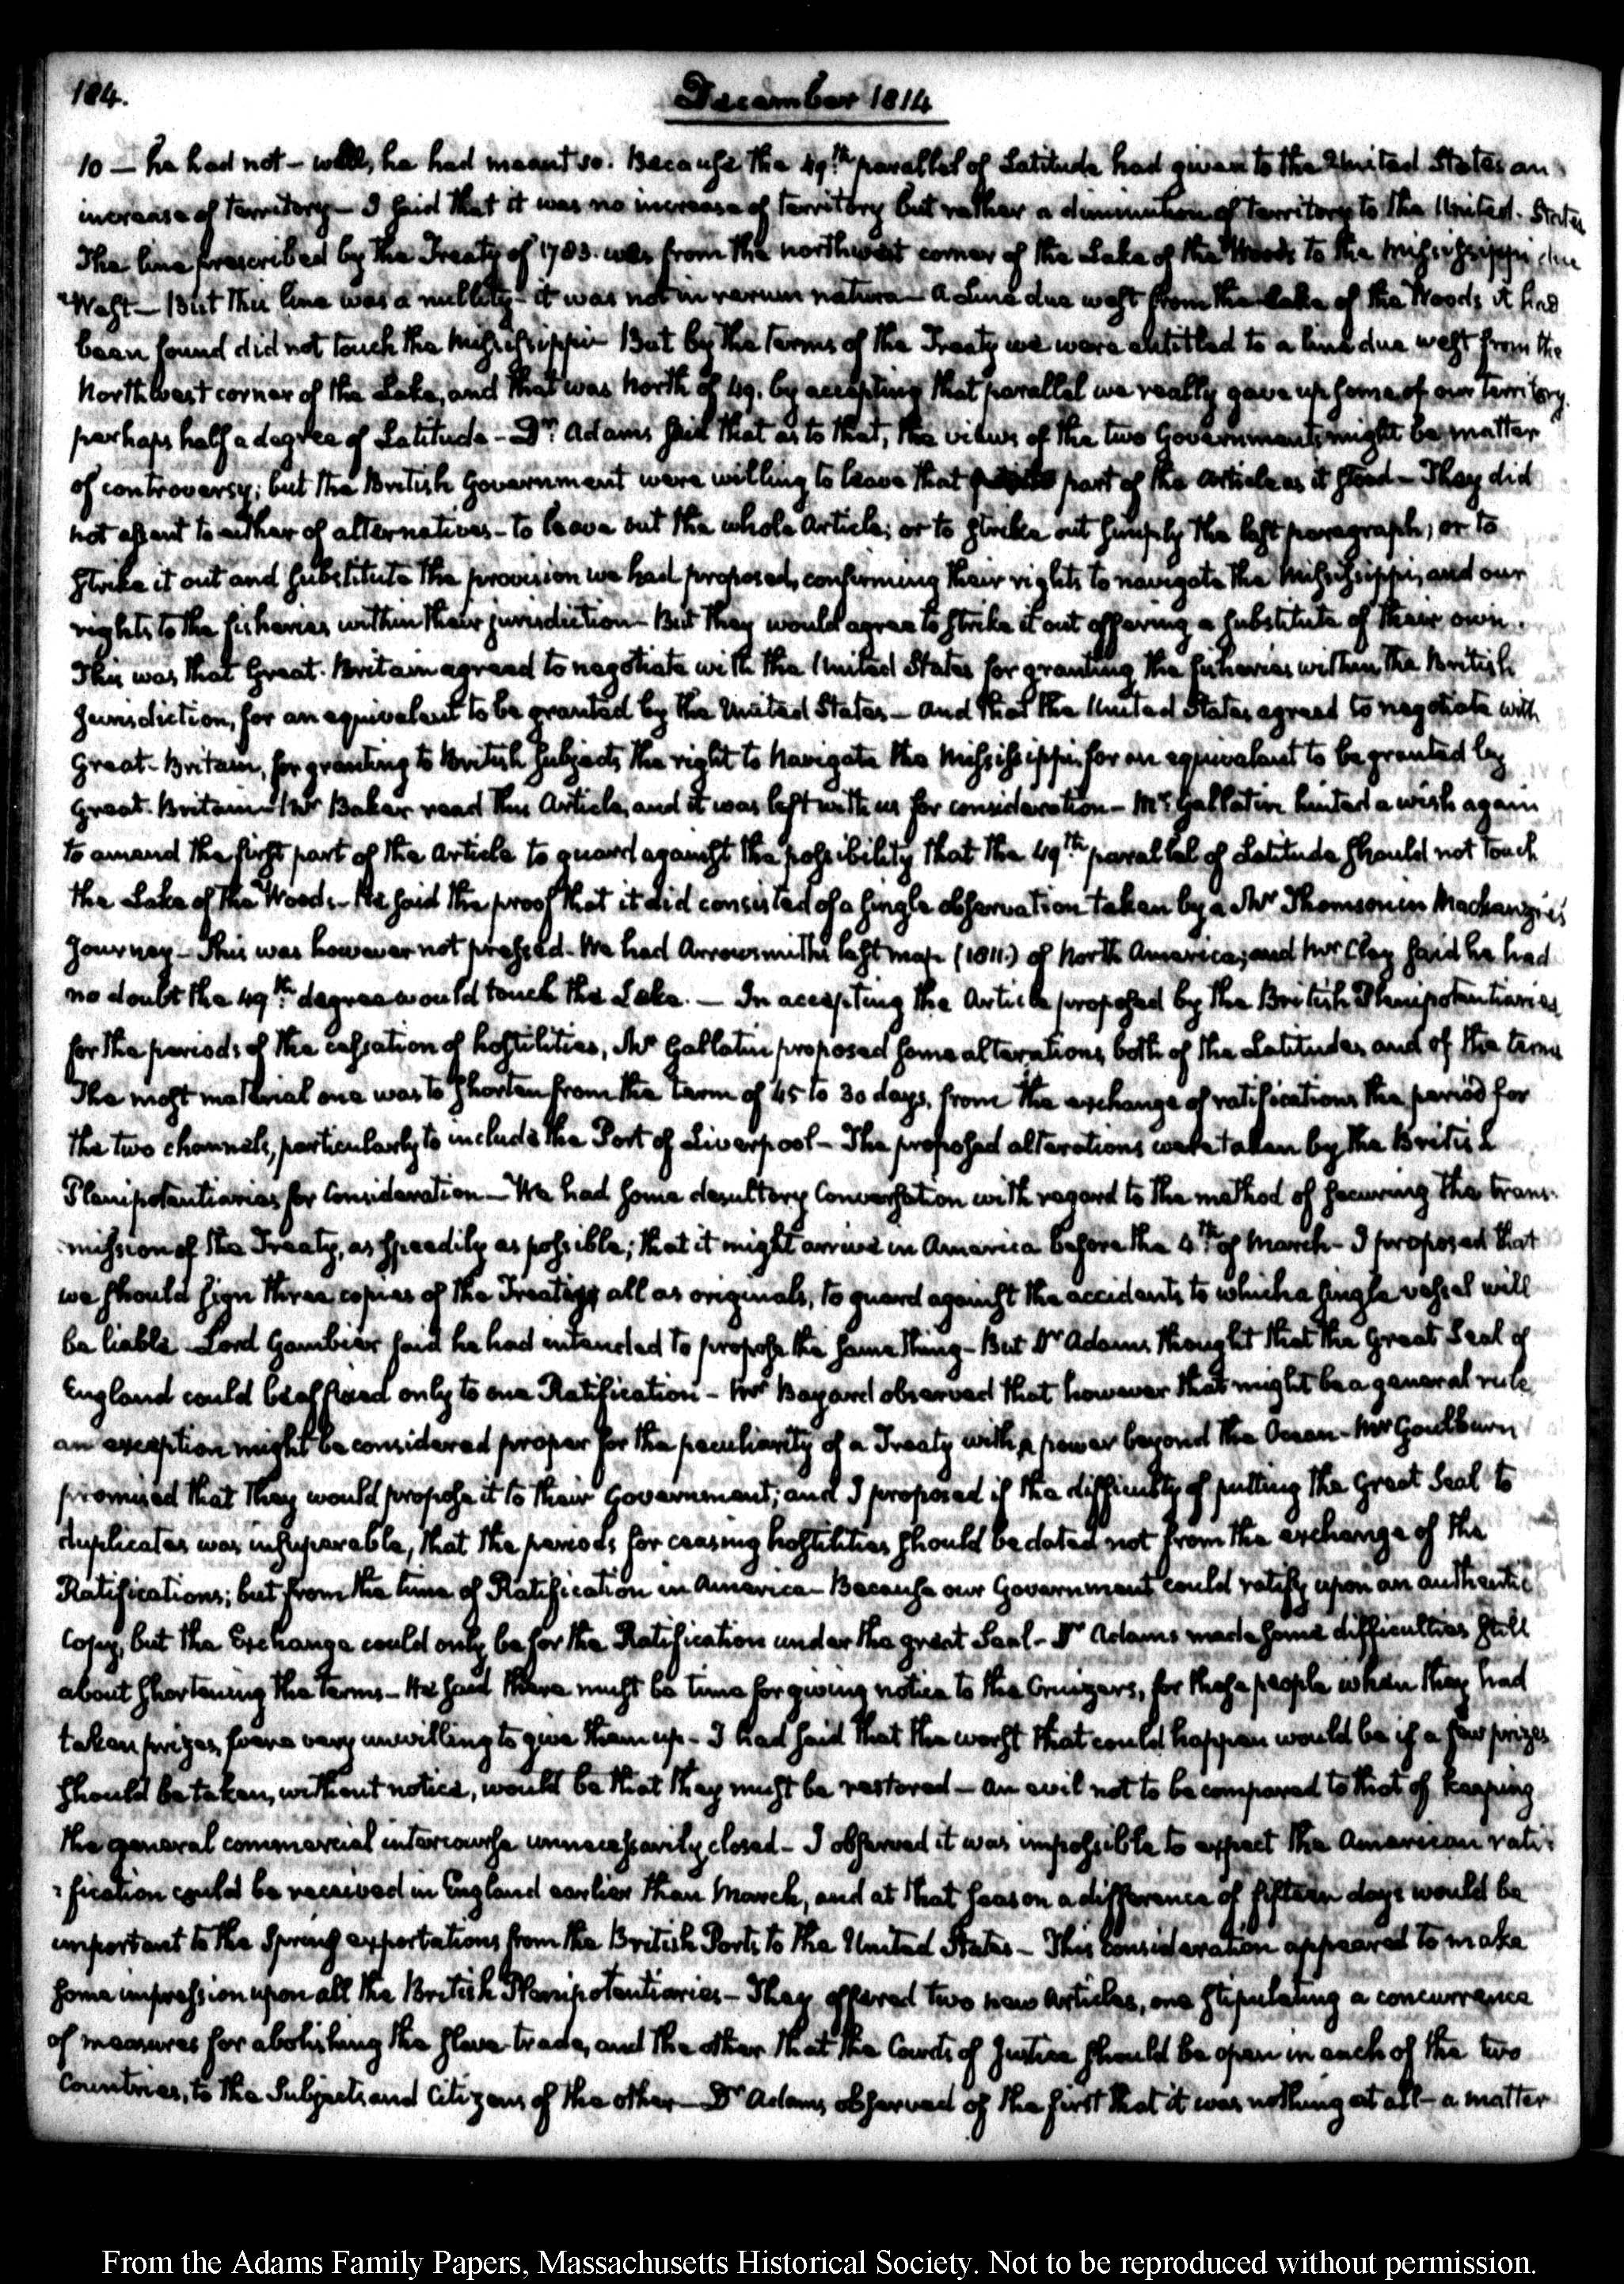 184.
December 1814
so — he had not — well, he had meant so. Because the 49th parallel of Latitude had given to the United States an
increase of territory — I said that it was no increase of territory but rather a diminution of territory to the United States
The line prescribed by the Treaty of 1783. was from the northwest corner of the Lake of the Woods to the Mississippi due
West — But this line was a nullity — it was not in rerum natura — A line due west from the Lake of the Woods it had
been found did not touch the Mississippi — But by the terms of the Treaty we were entitled to a line due west from the
Northwest corner of the Lake, and that was North of 49. by accepting that parallel we really gave up some of our territory.
perhaps half a degree of Latitude — Dr Adams said that as to that, the views of the two Governments might be matter
of controversy; but the British Government were willing to leave that part of the Article as it stood — They did
not assent to either of alternatives — to leave out the whole Article; or to strike out simply the last paragraph; or to
strike it out and substitute the provision we had proposed, confirming their rights to navigate the Mississippi, and our
rights to the fisheries within their jurisdiction — But they would agree to strike it out offering a substitute of their own.
This was that Great-Britain agreed to negotiate with the United States for granting the fisheries within the British
jurisdiction, for an equivalent to be granted by the United States — and that the United States agreed to negotiate with
Great-Britain, for granting to British subjects the right to navigate the Mississippi, for an equivalent to be granted by
Great-Britain — Mr Baker read this Article, and it was left with us for consideration — Mr Gallatin hinted a wish again
to amend the first part of the Article to guard against the possibility that the 49th parallel of Latitude should not touch
the Lake of the Woods — He said the proof that it did consisted of a single observation taken by a Mr Thomson in Mackenzie's
Journey — This was however not pressed — We had Arrowsmith's last map (1811.) of North America; and Mr Clay said he had
no doubt the 49th degree would touch the Lake. — In accepting the Article proposed by the British Plenipotentiaries
for the periods of the cessation of hostilities, Mr Gallatin proposed some alterations both of the Latitudes and of the terms
The most material one was to shorten from the term of 45 to 30 days, from the exchange of ratifications the period for
the two channels, particularly to include the Port of Liverpool — The proposed alterations were taken by the British
Plenipotentiaries for Consideration — We had some desultory Conversation with regard to the method of securing the trans-
mission of the Treaty, as speedily as possible; that it might arrive in America before the 4th of March — I proposed that
we should sign three copies of the Treaty all as originals, to guard against the accidents to which a single vessel will
be liable — Lord Gambier said he had intended to propose the same thing — But Dr Adams thought that the Great Seal of
England could be affixed only to one Ratification — Mr Bayard observed that however that might be a general rule
an exception might be considered proper for the peculiarity of a Treaty with a power beyond the Ocean — Mr Goulburn
promised that they would propose it to their Government; and I proposed if the difficulty of putting the Great Seal to
duplicates was insuperable, that the periods for ceasing hostilities should be dated not from the exchange of the
Ratifications; but from the time of Ratification in America — Because our Government could ratify upon an authentic
Copy, but the Exchange could only be for the Ratification under the great Seal — Dr Adams made some difficulties still
about shortening the terms — He said there must be time for giving notice to the Cruizers, for those people when they had
taken prizes, were very unwilling to give them up — I had said that the worst that could happen would be if a few prizes
should be taken, without notice, would be that they must be restored — an evil not to be compared to that of keeping
the general commercial intercourse unnecessarily closed — I observed it was impossible to expect the American rati-
fication could be received in England earlier than March, and at that season a difference of fifteen days would be
important to the Spring exportations from the British Ports to the United States — This consideration appeared to make
some impression upon all the British Plenipotentiaries — They offered two new Articles, one stipulating a concurrence
of measures for abolishing the slave-trade, and the other that the Courts of Justice should be open in each of the two
Countries, to the Subjects and Citizens of the other — Dr Adams observed of the first that it was nothing at all — a matter
From the Adams Family Papers, Massachusetts Historical Society. Not to be reproduced without permission.